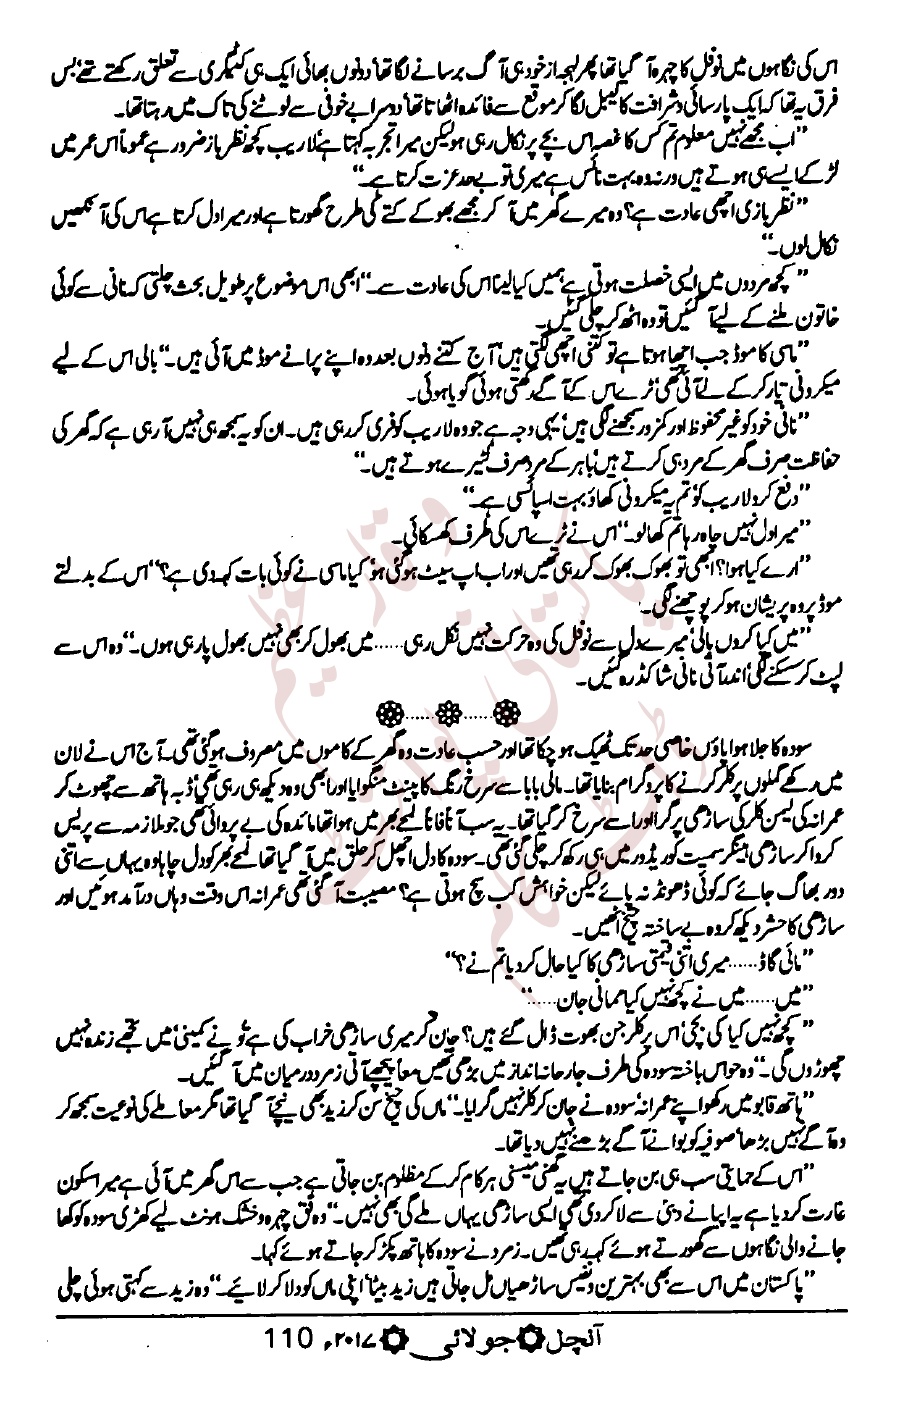 اس کی نگاہوں میں نوفل کا چہرہ آ گیا تھا پھر لہجہ از خود ہی آگ برسانے لگا تھا دونوں بھائی ایک ہی کیٹیگری سے تعلق رکھتے تھے بس
فرق یہ تھا کہ ایک پارسائی و شرافت کا لیبل لگا کر موقع سے فائدہ اٹھاتا تھا دوسرا بے خوفی سے لوٹنے کی تاک میں رہتا تھا۔
”اب مجھے نہیں معلوم تم کس کا غصہ اس بچے پر نکال رہی ہو لیکن میرا تجربہ کہتا ہے لاریب کچھ نظر باز ضرور ہے عموماً اس عمر میں
لڑکے ایسے ہی ہوتے ہیں ورنہ وہ بہت نائس ہے میری تو بے حد عزت کرتا ہے۔“
”نظر بازی اچھی عادت ہے؟ وہ میرے گھر میں آ کر مجھے بھوکے کتے کی طرح گھورتا ہے اور میرا دل کرتا ہے اس کی آنکھیں
نکال لوں۔“
”کچھ مردوں میں ایسی خصلت ہوتی ہے ہمیں کیا لینا اس کی عادت سے۔“ ابھی اس موضوع پر طویل بحث چلتی کہ نانی سے کوئی
خاتون ملنے کے لیے آ گئیں تو وہ اٹھ کر چلی گئیں۔
”ماسی کا موڈ جب اچھا ہوتا ہے تو کتنی اچھی لگتی ہیں آج کتنے دنوں بعد وہ اپنے پرانے موڈ میں آئی ہیں۔“ بالی اس کے لیے
میکرونی تیار کر کے لے آئی تھی ٹرے اس کے آگے رکھتی ہوئی گویا ہوئی۔
”نانی خود کو غیر محفوظ اور کمزور سمجھنے لگی ہیں یہی وجہ ہے جو وہ لاریب کو فری کر رہی ہیں۔ ان کو یہ سمجھ ہی نہیں آ رہی ہے کہ گھر کی
حفاظت صرف گھر کے مرد ہی کرتے ہیں باہر کے مرد صرف لٹیرے ہوتے ہیں۔“
”دفع کرو لاریب کو تم یہ میکرونی کھاؤ بہت اسپائسی ہے۔“
”میرا دل نہیں چاہ رہا تم کھا لو۔“ اس نے ٹرے اس کی طرف کھسکائی۔
”ارے کیا ہوا؟ ابھی تو بھوک بھوک کر رہی تھیں اور اب اپ سیٹ ہو گئی ہو کیا ماسی نے کوئی بات کہہ دی ہے؟“ اس کے بدلتے
موڈ پر وہ پریشان ہو کر پوچھنے لگی۔
”میں کیا کروں بالی میرے دل سے نوفل کی وہ حرکت نہیں نکل رہی...... میں بھول کر بھی نہیں بھول پا رہی ہوں۔“ وہ اس سے
لپٹ کر سسکنے لگی اندر آتی نانی شاکڈ رہ گئیں۔
سودہ کا جلا ہوا پاؤں خاصی حد تک ٹھیک ہو چکا تھا اور حسب عادت وہ گھر کے کاموں میں مصروف ہو گئی تھی۔ آج اس نے لان
میں رکھے گملوں پر کلر کرنے کا پروگرام بنایا تھا۔ مالی بابا سے سرخ رنگ کا پینٹ منگوایا اور ابھی وہ دیکھ ہی رہی تھی ڈبہ ہاتھ سے چھوٹ کر
عمرانہ کی لیمن کلر کی ساڑھی پر گرا اور اسے سرخ کر گیا تھا۔ یہ سب آناً فاناً لمحے بھر میں ہوا تھا مائدہ کی بے پروائی تھی جو ملازمہ سے پریس
کروا کر ساڑھی ہینگر سمیت کوریڈور میں ہی رکھ کر چلی گئی تھی۔ سودہ کا دل اچھل کر حلق میں آ گیا تھا لمحے بھر کو دل چاہا وہ یہاں سے اتنی
دور بھاگ جائے کہ کوئی ڈھونڈ نہ پائے لیکن خواہش کب سچ ہوتی ہے؟ مصیبت آ گئی تھی عمرانہ اس وقت وہاں در آمد ہوئیں اور
ساڑھی کا حشر دیکھ کر وہ بے ساختہ چیخ اٹھیں۔
”مائی گاڈ...... میری اتنی قیمتی ساڑھی کا کیا حال کر دیا تم نے؟“
”میں...... میں نے کچھ نہیں کیا ممانی جان......“
”کچھ نہیں کیا کی بچی اس پر کلر جن بھوت ڈال گئے ہیں؟ جان کر میری ساڑھی خراب کی ہے تو نے کمینی میں تجھے زندہ نہیں
چھوڑوں گی۔“ وہ حواس باختہ سودہ کی طرف جارحانہ انداز میں بڑھی تھیں معاً پیچھے آتی زمرد درمیان میں آ گئیں۔
”ہاتھ قابو میں رکھو اپنے عمرانہ سودہ نے جان کر کلر نہیں گرایا۔“ ماں کی چیخ سن کر زید بھی نیچے آ گیا تھا مگر معاملے کی نوعیت سمجھ کر
وہ آگے نہیں بڑھا صوفیہ کو بوا نے آگے بڑھنے نہیں دیا تھا۔
”اس کے حمایتی سب ہی بن جاتے ہیں یہ گھنی میسنی ہر کام کر کے مظلوم بن جاتی ہے جب سے اس گھر میں آئی ہے میرا سکون
غارت کر دیا ہے یہ اپیا نے دبئی سے لا کر دی تھی ایسی ساڑھی یہاں ملے گی بھی نہیں۔“ وہ فق چہرہ و خشک ہونٹ لیے کھڑی سودہ کو کھا
جانے والی نگاہوں سے گھورتے ہوئے کہہ رہی تھیں۔ زمرد نے سودہ کا ہاتھ پکڑ کر جاتے ہوئے کہا۔
”پاکستان میں اس سے بھی بہترین و نفیس ساڑھیاں مل جاتی ہیں زید بیٹا اپنی ماں کو دلا کر لائیے۔“ وہ زید سے کہتی ہوئی چلی
آنچل جولائی ۲۰۱۷ء 110